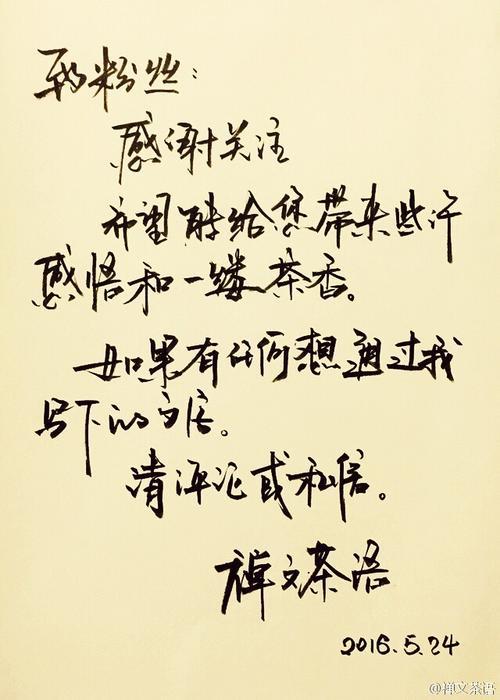 致粉丝：
感谢关注
希望能给您带来些许
感悟和一缕茶香。
如果有任何想通过我
写下的文字。
请评论或私信。
禅文茶语
2016.5.24
@禅文茶语